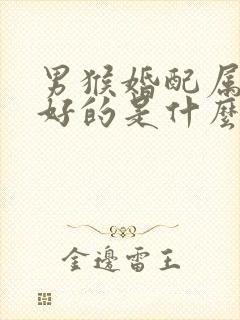 男猴婚配属
好的是什麽
金邊雷王